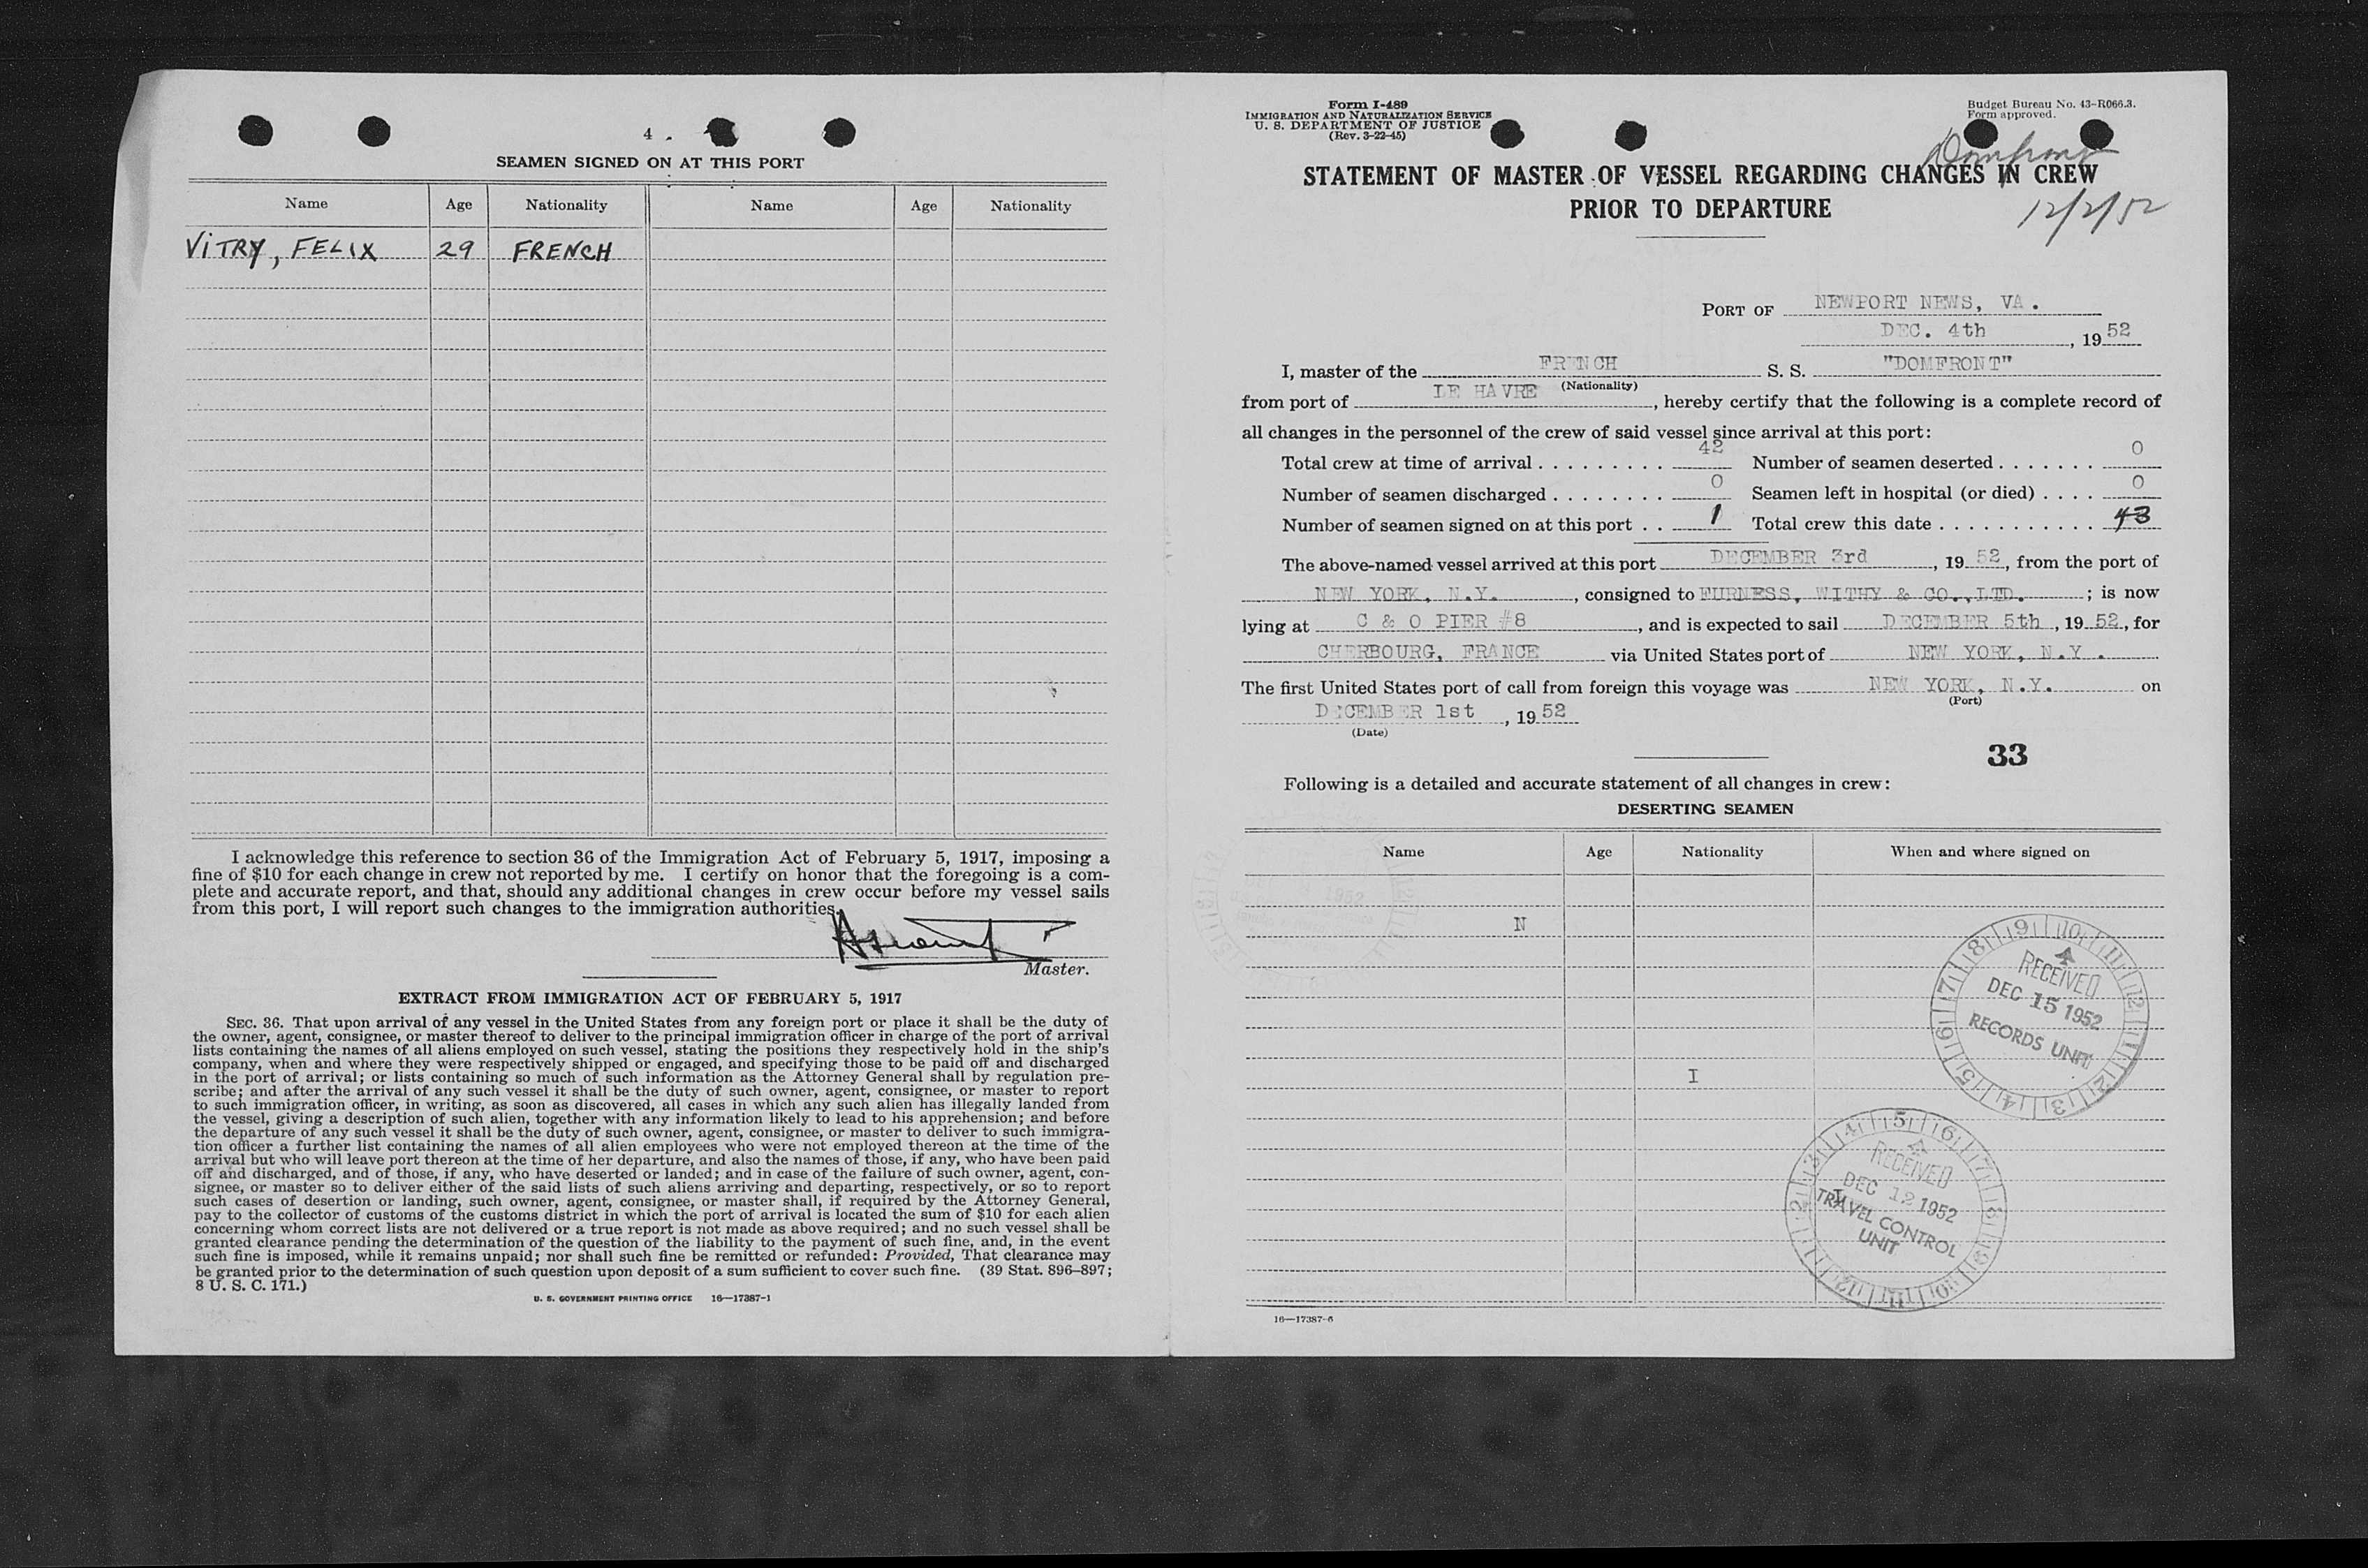 4
SEAMEN SIGNED ON AT THIS PORT
Name Age Nationality Name Age Nationality
VITRY, FELIX 29 FRENCH
I acknowledge this reference to section 36 of the Immigration Act of February 5, 1917, imposing a
fine of $10 for each change in crew not reported by me. I certify on honor that the foregoing is a com-
plete and accurate report, and that, should any additional changes in crew occur before my vessel sails
from this port, I will report such changes to the immigration authorities.
Master.
EXTRACT FROM IMMIGRATION ACT OF FEBRUARY 5, 1917
SEC. 36. That upon arrival of any vessel in the United States from any foreign port or place it shall be the duty of
the owner, agent, consignee, or master thereof to deliver to the principal immigration officer in charge of the port of arrival
lists containing the names of all aliens employed on such vessel, stating the positions they respectively hold in the ship's
company, when and where they were respectively shipped or engaged, and specifying those to be paid off and discharged
in the port of arrival; or lists containing so much of such information as the Attorney General shall by regulation pre-
scribe; and after the arrival of any such vessel it shall be the duty of such owner, agent, consignee, or master to report
to such immigration officer, in writing, as soon as discovered, all cases in which any such alien has illegally landed from
the vessel, giving a description of such alien, together with any information likely to lead to his apprehension; and before
the departure of any such vessel it shall be the duty of such owner, agent, consignee, or master to deliver to such immigra-
tion officer a further list containing the names of all alien employees who were not employed thereon at the time of the
arrival but who will leave port thereon at the time of her departure, and also the names of those, if any, who have been paid
off and discharged, and of those, if any, who have deserted or landed; and in case of the failure of such owner, agent, con-
signee, or master so to deliver either of the said lists of such aliens arriving and departing, respectively, or so to report
such cases of desertion or landing, such owner, agent, consignee, or master shall, if required by the Attorney General,
pay to the collector of customs of the customs district in which the port of arrival is located the sum of $10 for each alien
concerning whom correct lists are not delivered or a true report is not made as above required; and no such vessel shall be
granted clearance pending the determination of the question of the liability to the payment of such fine, and, in the event
such fine is imposed, while it remains unpaid; nor shall such fine be remitted or refunded: Provided, That clearance may
be granted prior to the determination of such question upon deposit of a sum sufficient to cover such fine. (39 Stat. 896–897;
8 U. S. C. 171.)
U. S. GOVERNMENT PRINTING OFFICE 16—17387-1
Form I-489
IMMIGRATION AND NATURALIZATION SERVICE
U. S. DEPARTMENT OF JUSTICE
(Rev. 3-22-45)
Budget Bureau No. 43–R066.3.
Form approved.
Domfront
STATEMENT OF MASTER OF VESSEL REGARDING CHANGES IN CREW
PRIOR TO DEPARTURE
12/2/52
PORT OF NEWPORT NEWS, VA.
DEC. 4th, 1952
I, master of the FRENCH S. S. "DOMFRONT"
(Nationality)
from port of LE HAVRE, hereby certify that the following is a complete record of
all changes in the personnel of the crew of said vessel since arrival at this port:
Total crew at time of arrival . . . . . . . . . 42 Number of seamen deserted . . . . . . . 0
Number of seamen discharged . . . . . . . . 0 Seamen left in hospital (or died) . . . . 0
Number of seamen signed on at this port . . 1 Total crew this date . . . . . . . . . . . 43
The above-named vessel arrived at this port DECEMBER 3rd, 1952, from the port of
NEW YORK, N.Y., consigned to FURNESS, WITHY & CO.,LTD. ; is now
lying at C & O PIER #8, and is expected to sail DECEMBER 5th, 1952, for
CHERBOURG, FRANCE via United States port of NEW YORK, N.Y.
The first United States port of call from foreign this voyage was NEW YORK, N.Y. on
(Port)
DECEMBER 1st, 1952
(Date)
33
Following is a detailed and accurate statement of all changes in crew:
DESERTING SEAMEN
Name Age Nationality When and where signed on
N
I
RECEIVED
DEC 15 1952
RECORDS UNIT
RECEIVED
DEC 12 1952
TRAVEL CONTROL
UNIT
16—17387-6